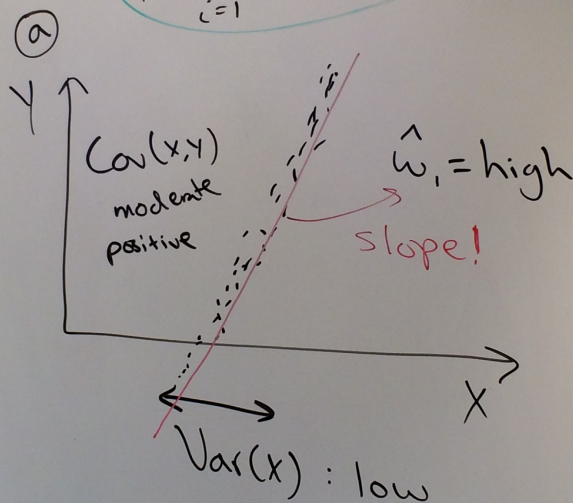 i=1
a
Y
Cov(X,Y)
moderate
positive
ŵ₁ = high
slope!
X
Var(X) : low